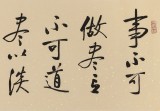 事不可
做盡言
不可道
盡以淡